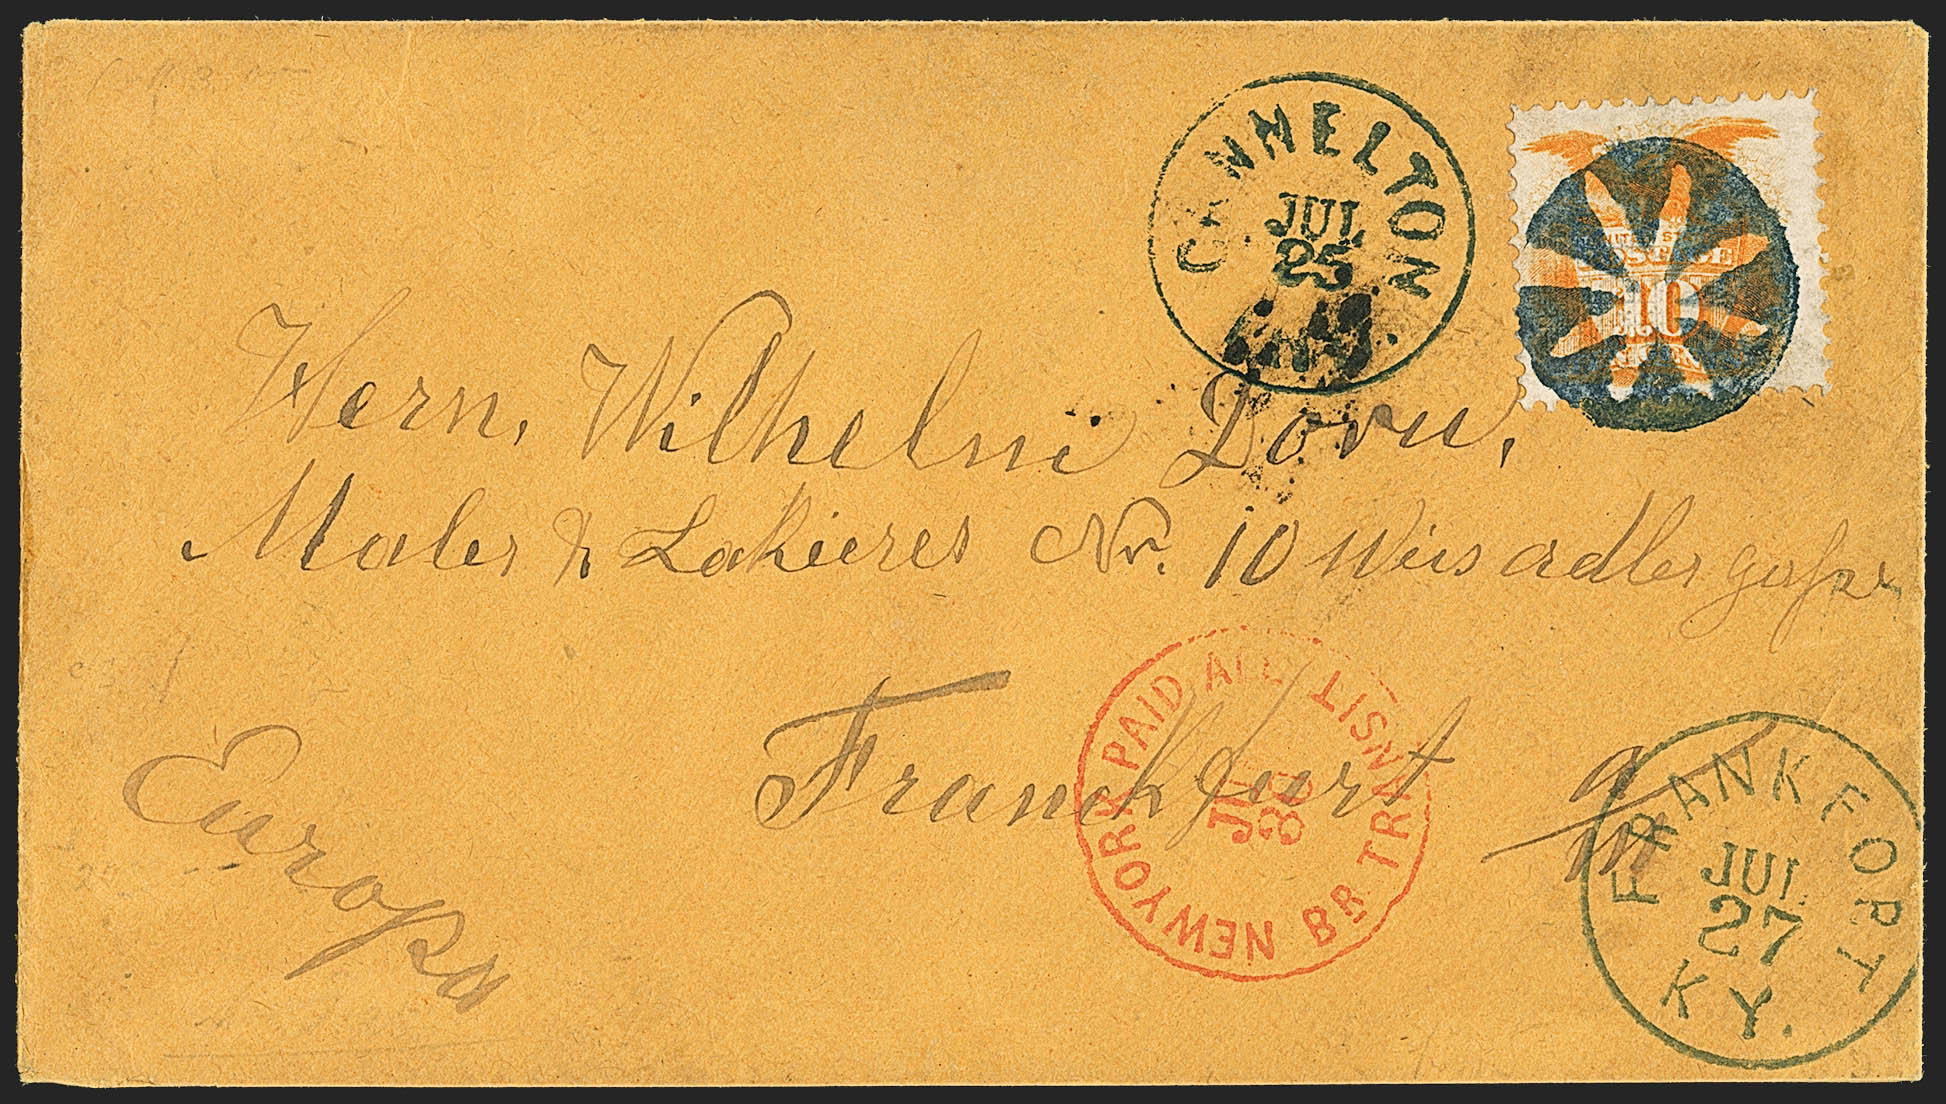 CANNELTON
JUL
25
IND.
UNITED STATES
POSTAGE
10
Herrn, Wilhelm Dorn,
Maler & Lakierer Nr. 10 Weis adler gasse
Franckfurt a/m
Europa
NEW YORK PAID ALL BR TRANSIT
JUL
30
FRANKFORT
JUL
27
KY.